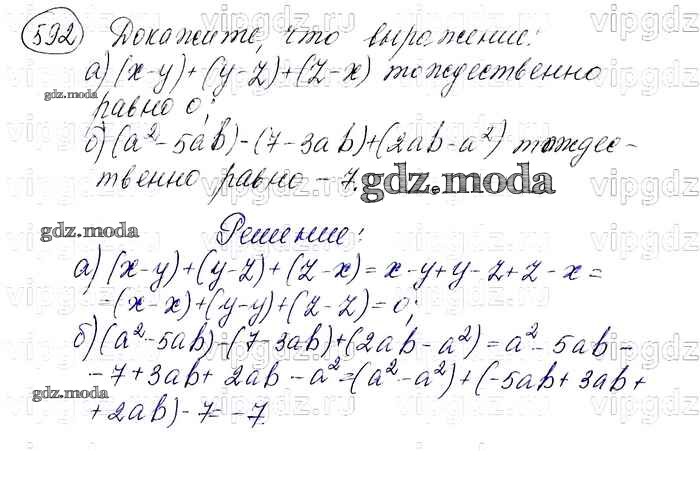 592 Докажите, что выражение:
а) (x-y)+(y-z)+(z-x) тождественно
равно 0;
б) (a²-5ab)-(7-3ab)+(2ab-a²) тождес-
твенно равно -7.
gdz.moda
gdz.moda
gdz.moda
Решение:
а) (x-y)+(y-z)+(z-x)=x-y+y-z+z-x=
=(x-x)+(y-y)+(z-z)=0;
б) (a²-5ab)-(7-3ab)+(2ab-a²)=a²-5ab-
-7+3ab+2ab-a²=(a²-a²)+(-5ab+3ab+
gdz.moda
+2ab)-7=-7.
vipgdz.ru